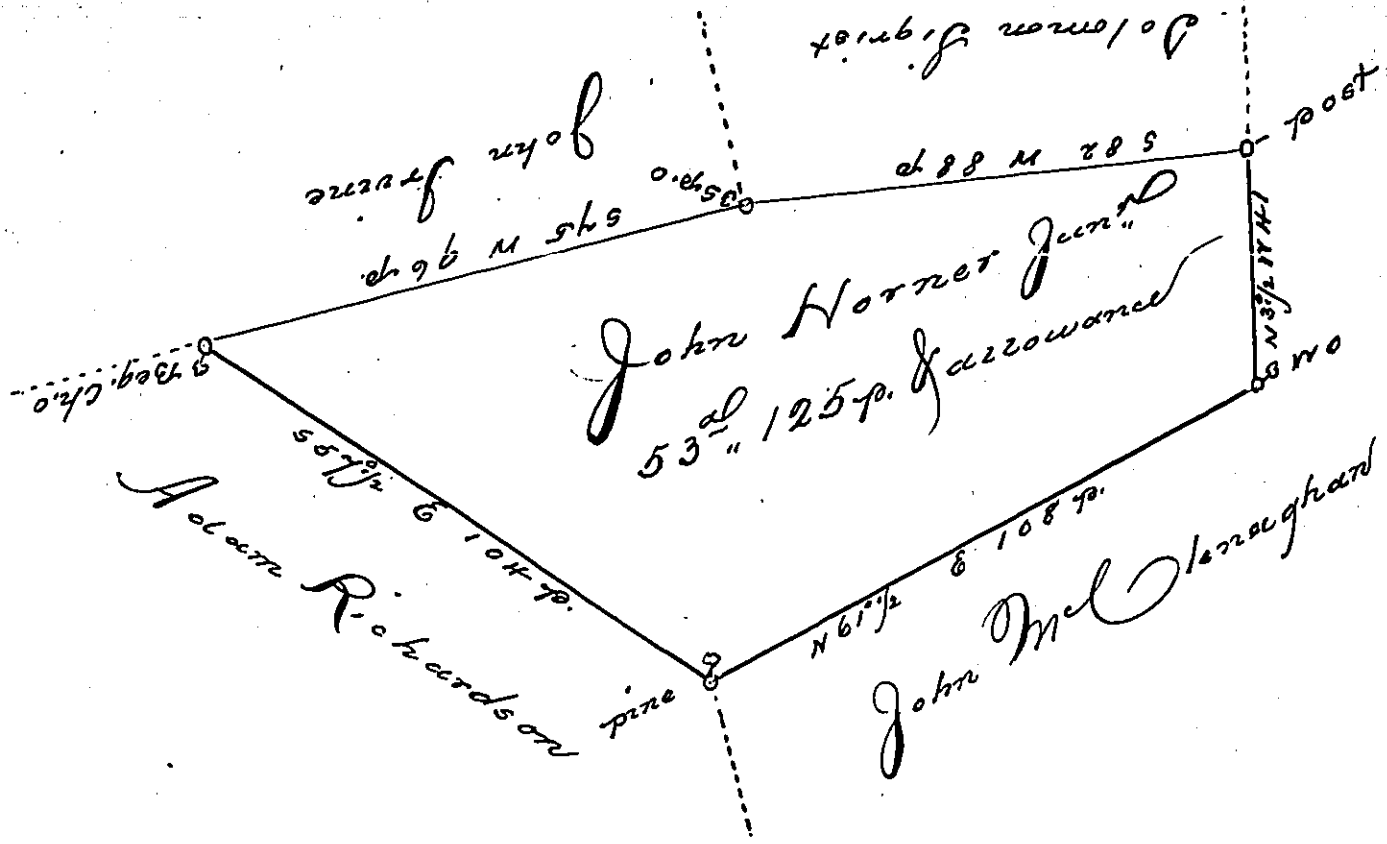 Solomon Sigrist
John Irvine
post
S 82 W 88 p
Sp. O
S 75 W 96 p.
John Horner Jun.r
53a,, 125 p. & allowance
N 3°½ W 41
W O
Beg. Ch. O
S 57°½ E 104 p.
Adam Richardson
pine
N 61°½ E 108 p.
John McClenaghan